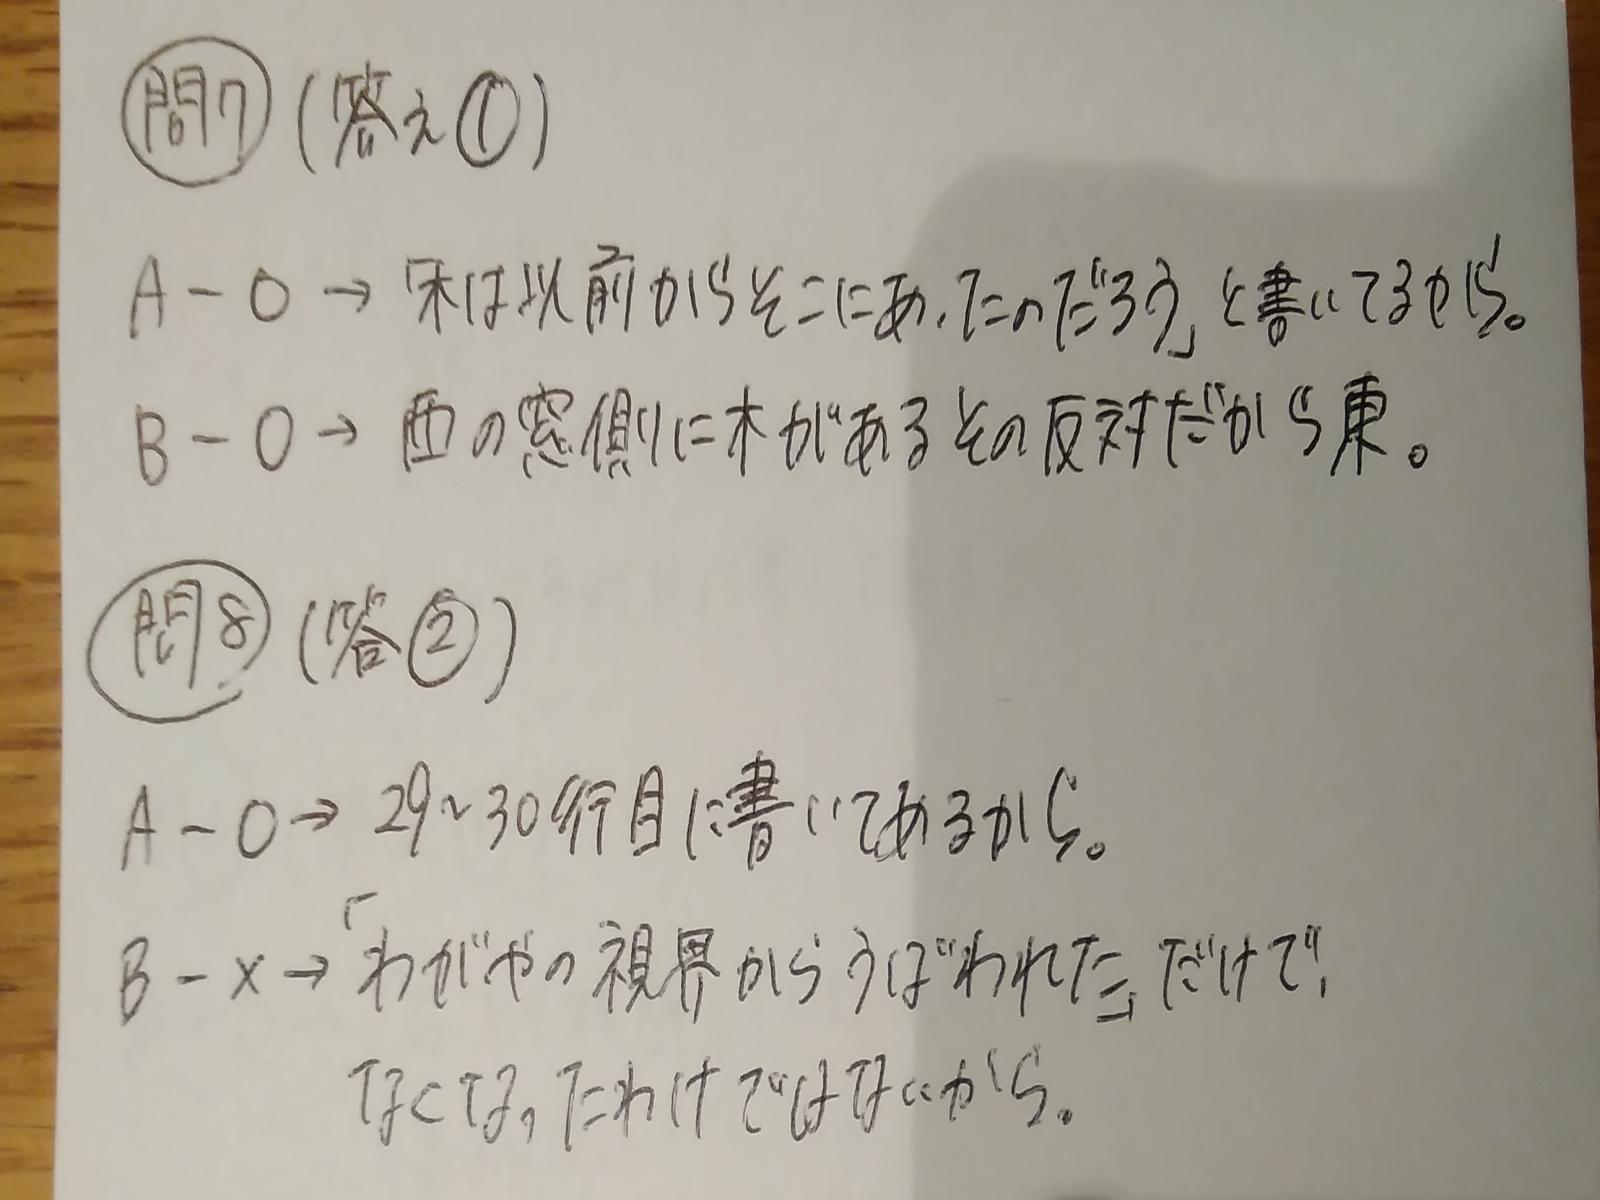 問7 (答え①)
A-○→「木は以前からそこにあったのだろう」と書いてるから。
B-○→ 西の窓側に木があるその反対だから東。
問8 (答②)
A-○→ 29~30行目に書いてあるから。
B-×→「わがやの視界からうばわれた」だけで、
なくなったわけではないから。